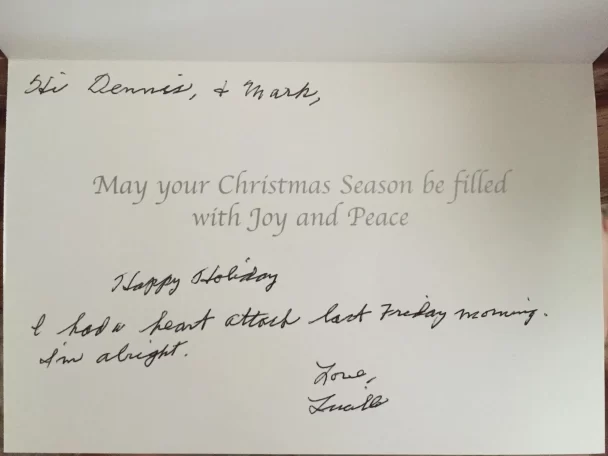 Hi Dennis, & Mark,
May your Christmas Season be filled
with Joy and Peace
Happy Holiday
I had a heart attack last Friday morning.
I'm alright.
Love,
Lucille